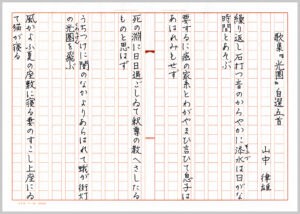 歌集『光圏』自選五首
山中律雄
繰り返し石打つ音のかろやかに添水は日がな
時間とあそぶ
要するに癌の家系とわがやまひ言ひて息子は
あはれみもせず
死の淵に日日過ごしゐて釈尊の教へさしたる
ものと思はず
うちつけに闇のなかよりあらはれて蛾が街灯
の光圏を飛ぶ
風かよふ夏の座敷に寝る妻のすこし上座にゐ
て猫が寝る